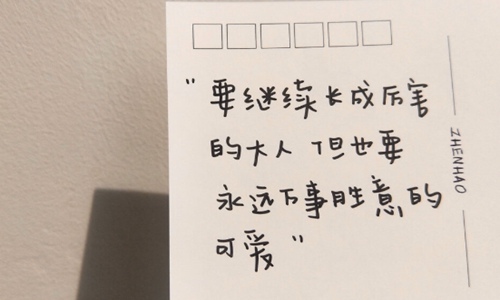 “要继续长成厉害
的大人 但也要
永远万事胜意的
可爱”
ZHENHAO